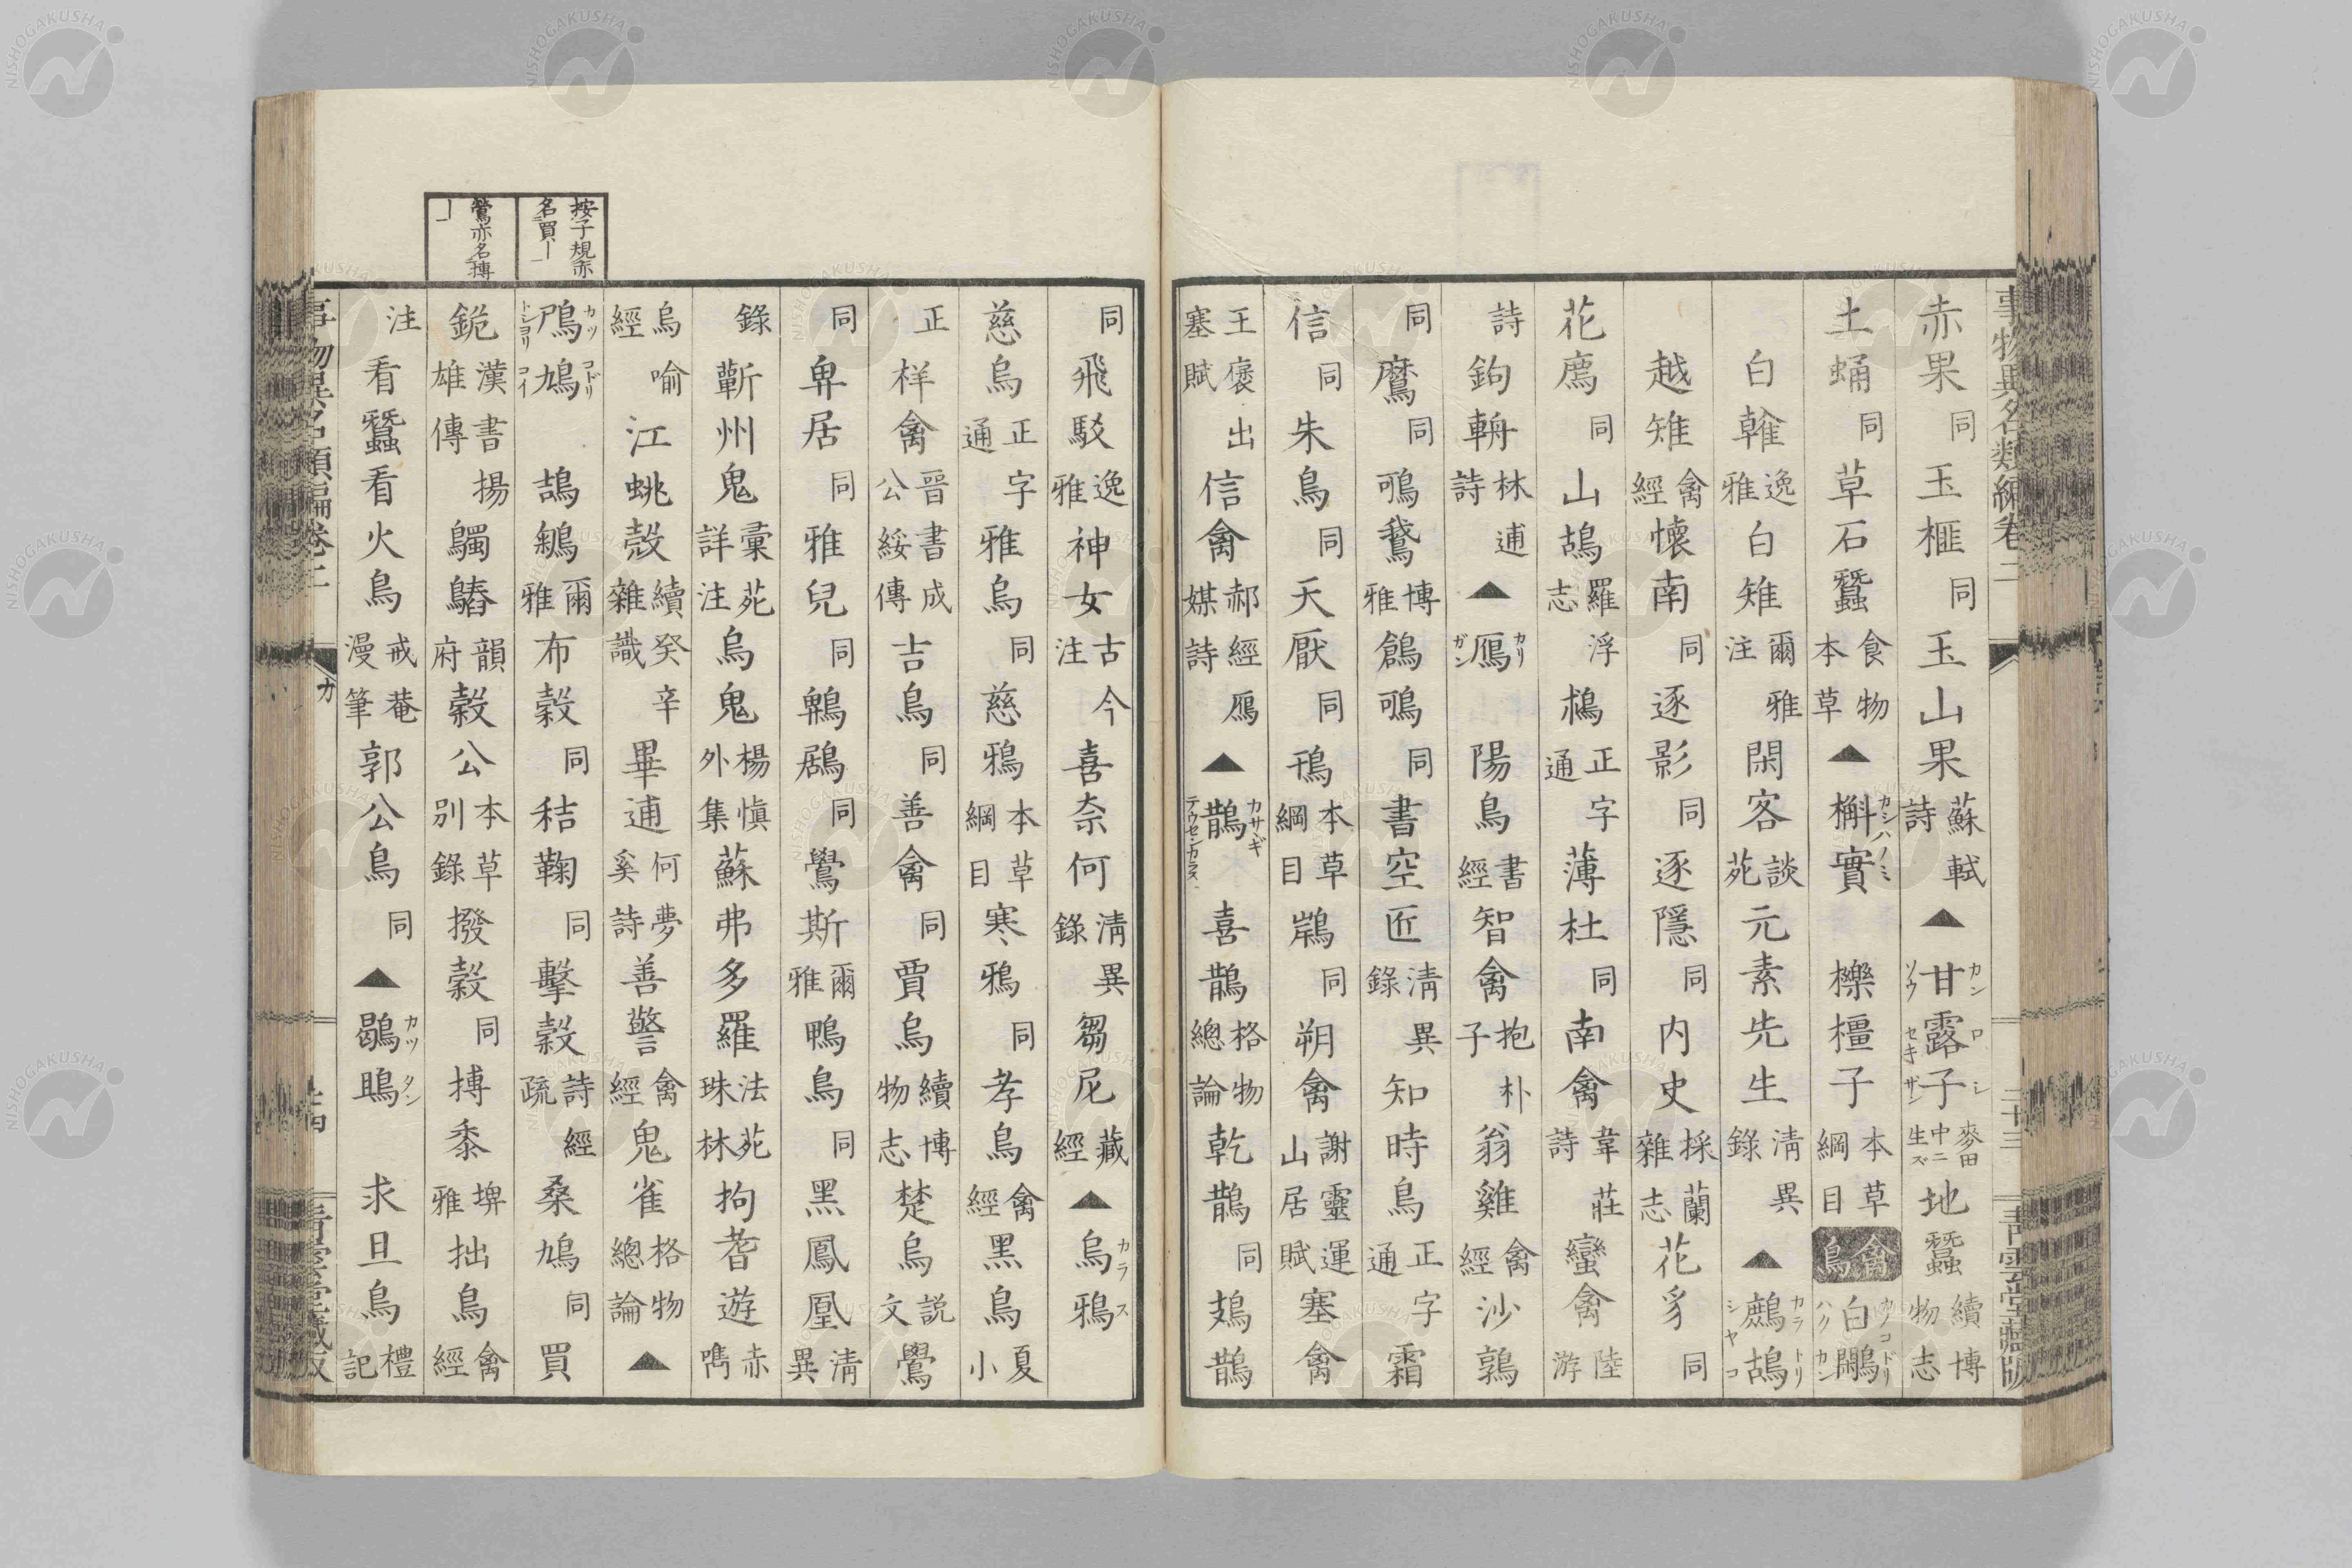 事物異名類編卷二
二十三
青雲堂藏版
赤果 同 玉榧 同 玉山果 蘇軾詩 ▲ 甘露子 カンロシ ソウセキザン 麥田中ニ生ズ 地蠶 續博物志
土蛹 同 草石蠶 食物本草 ▲ 槲實 カシハノミ 櫟橿子 本草綱目 禽鳥 白鷴 ハクカン
白雗 逸雅 白雉 爾雅注 閑客 談苑 元素先生 清異錄 ▲ 鷓鴣 カラトリ シヤコ
越雉 禽經 懐南 同 逐影 同 逐隱 同 内史 採蘭雜志 花豸 同
花鷓 同 山鴣 羅浮志 正字通 薄杜 同 南禽 韋莊詩 蠻禽 陸游
詩 鉤輈 林逋詩 ▲ 鴈 カリ ガン 陽鳥 書經 智禽 抱朴子 翁雞 禽經 沙鶉
同 鷹 同 鳴鵞 博雅 鶬鳴 同 書空匠 清異錄 知時鳥 正字通 霜
信 同 朱鳥 同 天厭 同 本草綱目 同 朔禽 謝靈運山居賦 塞禽
王褒塞賦 出信禽 郝經媒詩 鴈 ▲ 鵲 カサヽギ テウセンカラス 喜鵲 格物總論 乾鵲 同 鳷鵲
同 飛駁 逸雅 神女 古今注 喜奈何 清異錄 芻尼 藏經 ▲ 烏鴉 カラス
慈烏 正字通 雅烏 同 慈鴉 本草綱目 寒鴉 同 孝烏 禽經 黑烏 夏小
正 样禽 晉書成公綏傳 吉烏 同 善禽 同 賈烏 續博物志 楚烏 説文 鸒
同 卑居 同 雅兒 同 鵯鶋 同 鸒斯 爾雅 鴨烏 同 黑鳳凰 清異
錄 蘄州鬼 彙苑詳注 烏鬼 楊慎外集 蘇弗多羅 法苑珠林 拘耆遊 赤嘴
烏喻經 江 續癸辛雜識 畢逋 何夢奚詩 善警 禽經 鬼雀 格物總論 ▲
鳲鳩 カツコドリ トシヨリコイ 鴶鵴 爾雅 布穀 同 秸鞠 同 擊穀 詩經疏 桑鳩 同 買
鉇 漢書揚雄傳 韻府 穀公 本草別錄 撥穀 同 搏黍 埤雅 拙鳥 禽經
注 看蠶看火鳥 戒菴漫筆 郭公鳥 同 ▲ 鶡鴠 カツタン 求旦鳥 禮記
按子規亦名買
鶯亦名搏
カ